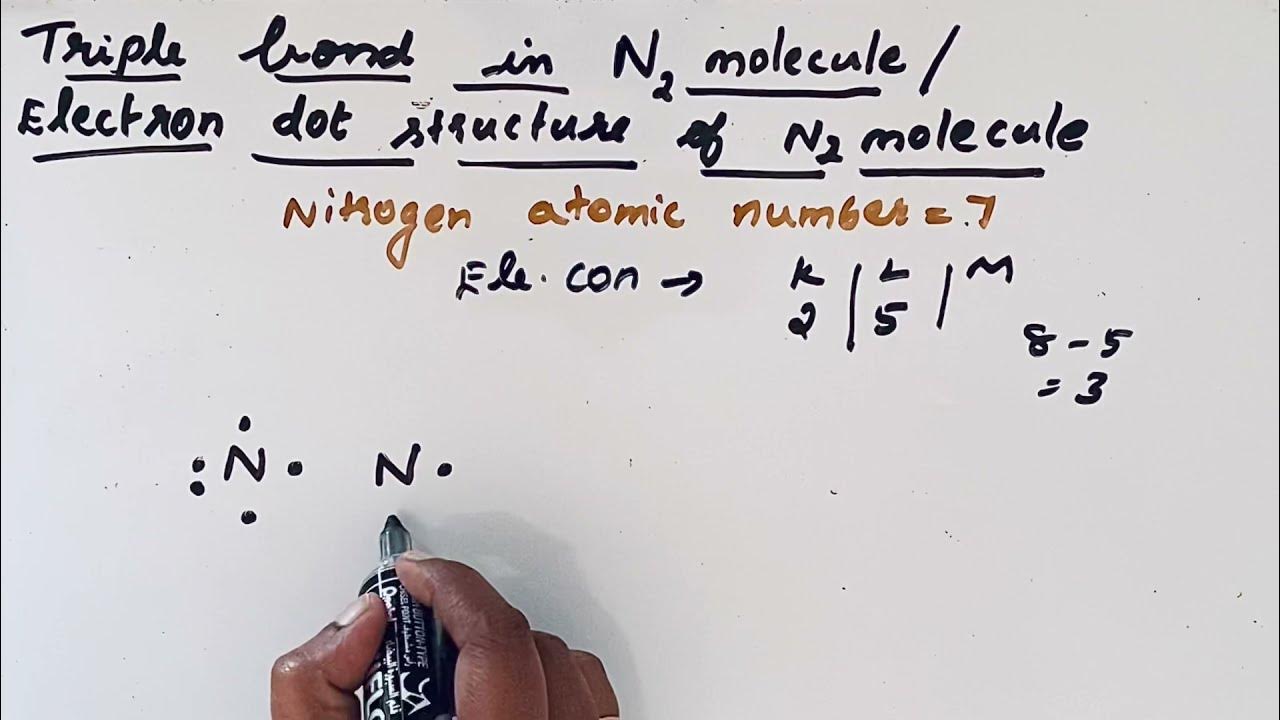 Triple bond in N₂ molecule /
Electron dot structure of N₂ molecule
Nitrogen atomic number = 7
Ele. con → K | L | M
2 | 5 |
8 - 5
= 3
N N
BUTTON-TYPE